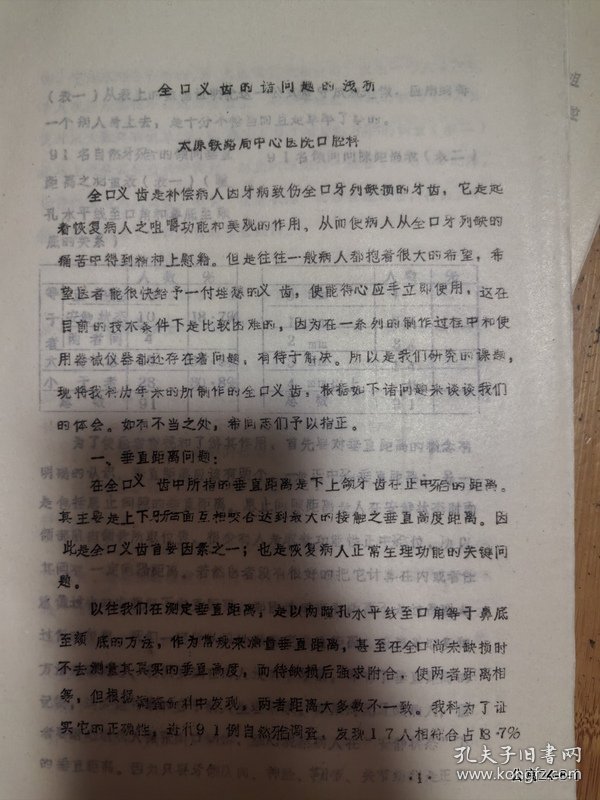 全口义齿的诸问题的浅析
太原铁路局中心医院口腔科
全口义齿是补偿病人因牙病致伤全口牙列缺损的牙齿，它是起
着恢复病人之咀嚼功能和美观的作用、从而使病人从全口牙列缺的
痛苦中得到精神上慰藉。但是往往一般病人都抱着很大的希望，希
望医者能很快给予一付理想的义齿，使能得心应手立即使用，这在
目前的技术条件下是比较困难的，因为在一系列的制作过程中和使
用器械仪器都还存在着问题，有待于解决。所以是我们研究的课题，
现将我科历年来的所制作的全口义齿，根据如下诸问题来谈谈我们
的体会。如有不当之处，希同志们予以指正。
一、垂直距离问题：
在全口义齿中所指的垂直距离是下上颌牙齿在正中𬌗的距离。
其主要是上下牙𬌗面互相咬合达到最大的接触之垂直高度距离。因
此是全口义齿首要因素之一；也是恢复病人正常生理功能的关键问
题。
以往我们在测定垂直距离，是以两瞳孔水平线至口角等于鼻底
至颏底的方法，作为常规来测量垂直距离，甚至在全口尚未缺损时
不去测量其真实的垂直高度，而待缺损后强求附合，使两者距离相
等，但根据调查资料中发现，两者距离大多数不一致。我科为了证
实它的正确性，进行91例自然𬌗调查，发现17人相符合占18·7%
·1·
孔夫子旧书网
kongfz.com